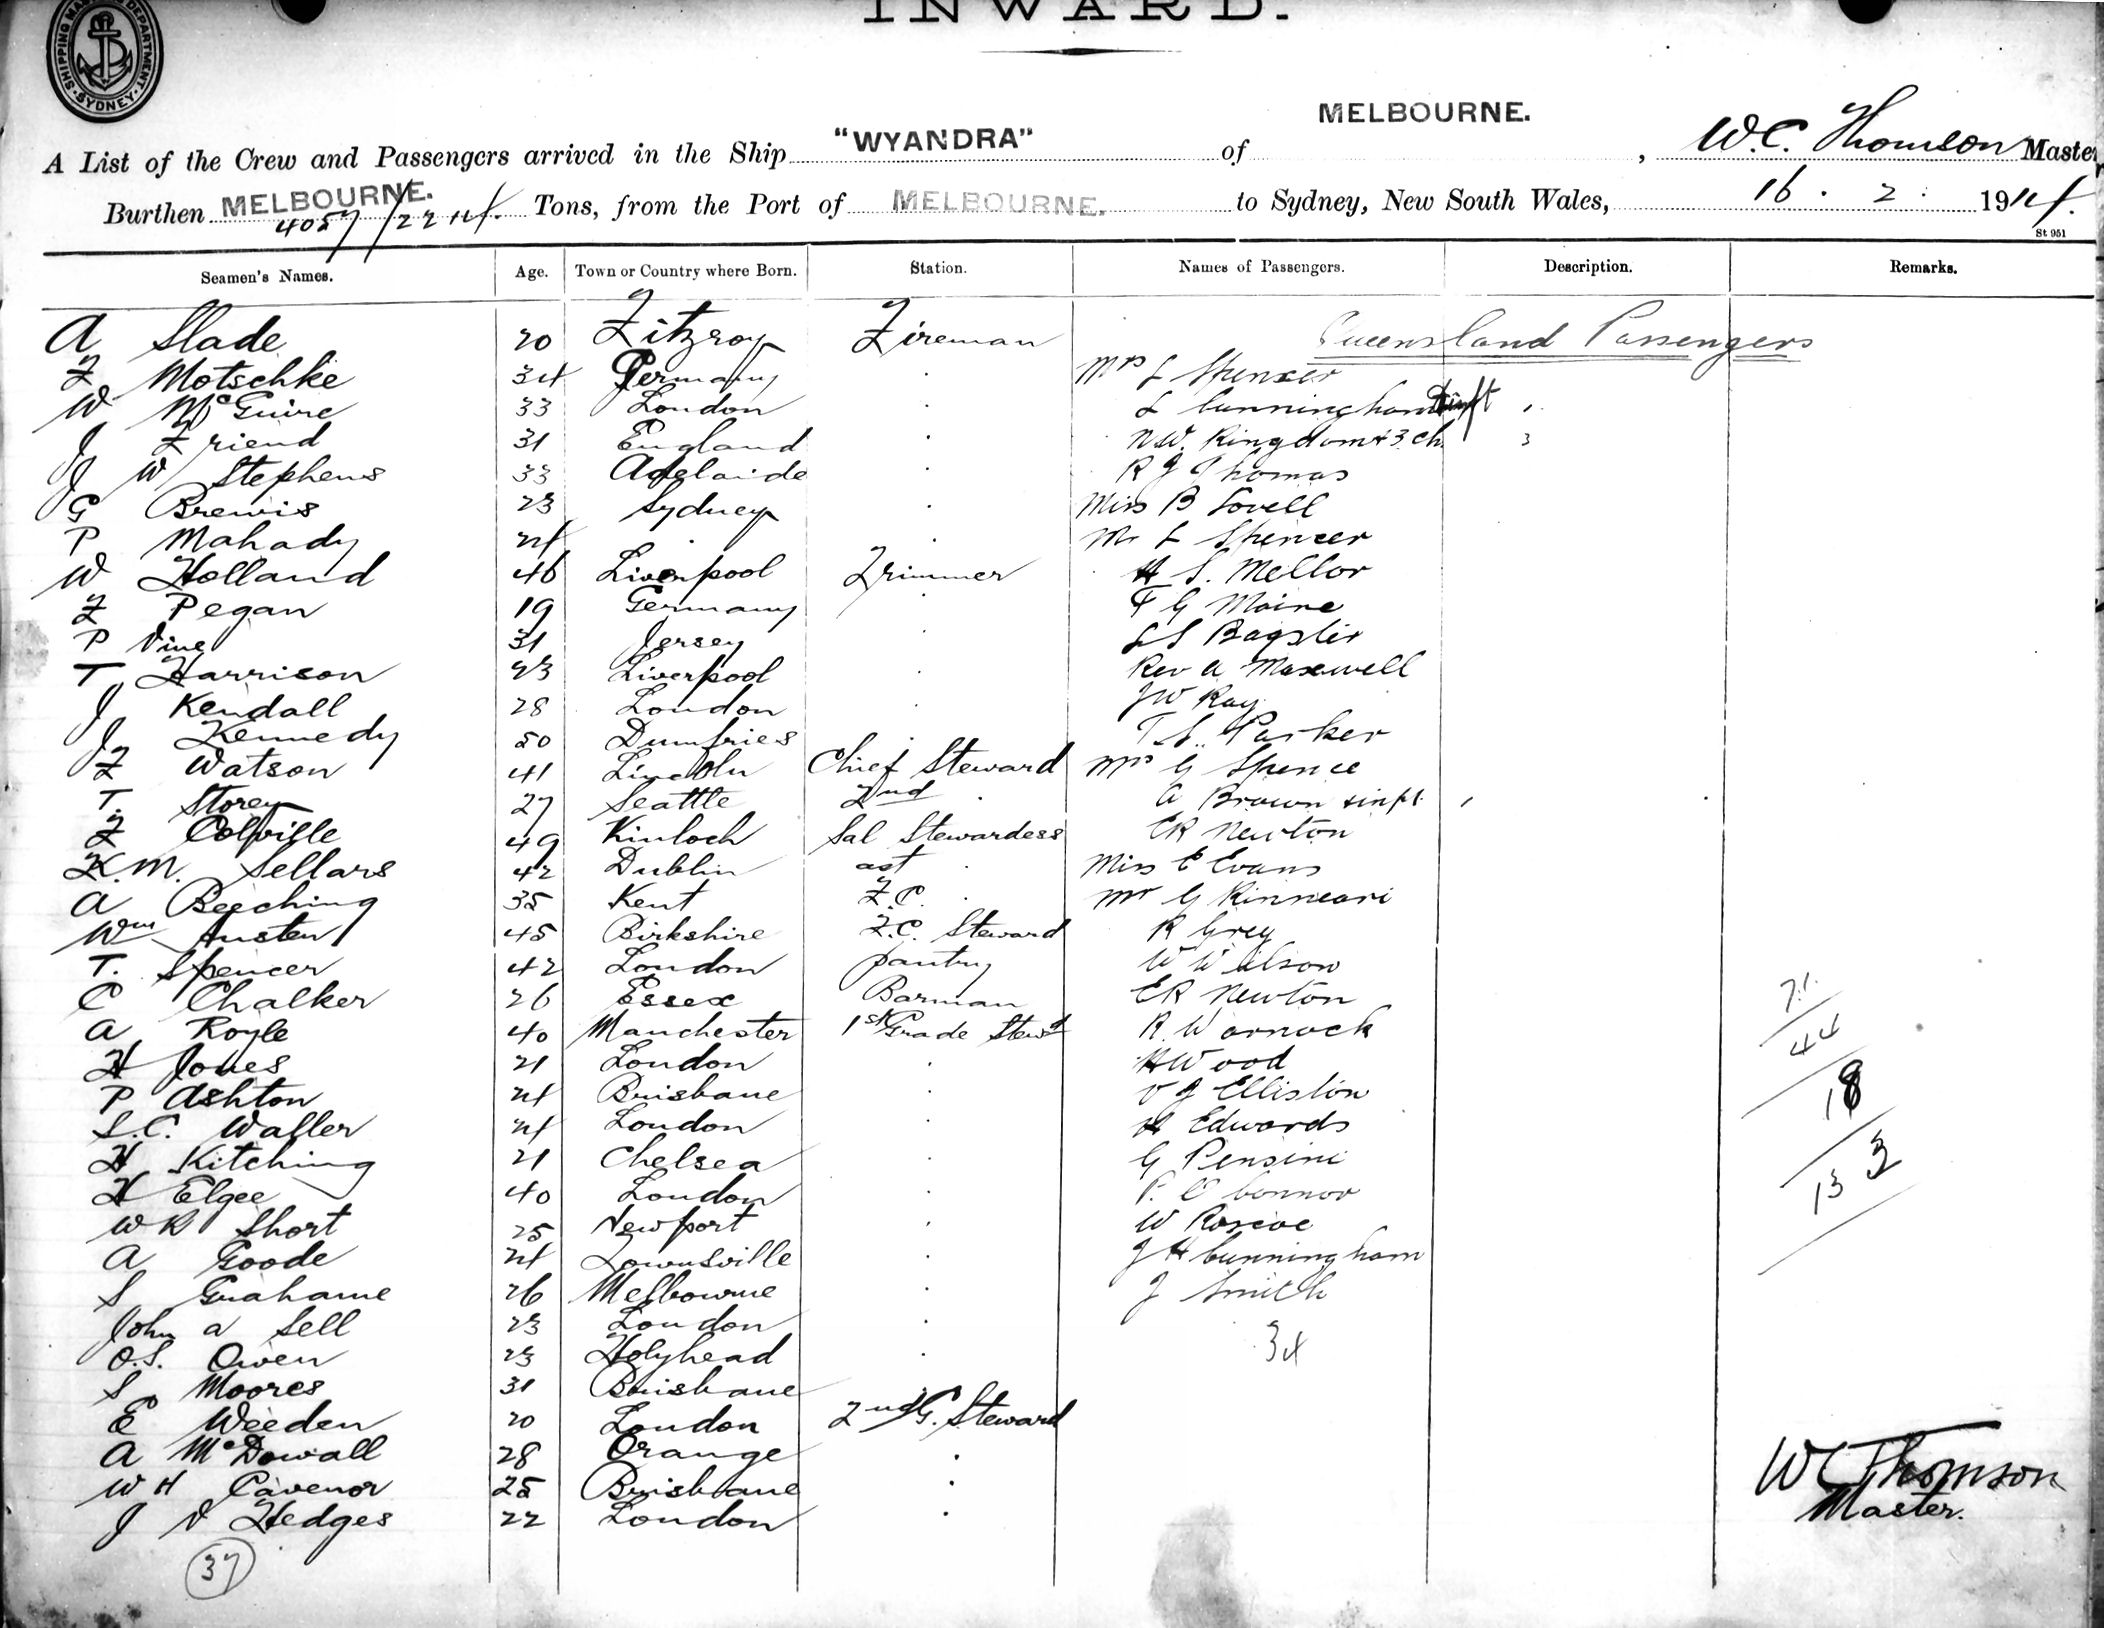 INWARD.
SHIPPING MASTER'S DEPARTMENT. SYDNEY.
MELBOURNE.
A List of the Crew and Passengers arrived in the Ship "WYANDRA" of , W.C. Thomson Master
Burthen MELBOURNE. 4057/2214. Tons, from the Port of MELBOURNE. to Sydney, New South Wales, 16 . 2 . 1914.
St 951
Seamen's Names. Age. Town or Country where Born. Station. Names of Passengers. Description. Remarks.
A Slade 20 Fitzroy Fireman Queensland Passengers
F Motschke 34 Germany . Mrs L Spencer
W McGuire 33 London . L Cunningham
J Friend 31 England . N.W. Kingdom & 3 ch 3
J W Stephens 33 Adelaide . R J Thomas
G Brewis 23 Sydney . Miss B Lovell
P Mahady 24 . . Mr L Spencer
W Holland 46 Liverpool Trimmer H S. Mellor
F Pegan 19 Germany . F G Moine
P Vine 31 Jersey . L S Bagster
T Harrison 23 Liverpool . Rev A Maxwell
J Kendall 28 London . J W Ray
J Kennedy 50 Dumfries . T S. Parker
F Watson 41 Lincoln Chief Steward Mrs G Spence
T. Storey 27 Seattle 2nd . A Brown & inft.
F Colville 49 Kinloch Sal Stewardess E R Newton
K.M. Sellars 42 Dublin ast . Miss E Evans
A Beeching 35 Kent F.C. . Mr G Kinneari
Wm Austen 45 Birkshire F.C. Steward R Grey
T. Spencer 42 London pantry W Wilson
C Chalker 26 Essex Barman E R Newton 71
A Royle 40 Manchester 1st Grade Stewd R Warnock 44
H Jones 21 London . H Wood
P Ashton 24 Brisbane . V J Elliston 18
S.C. Waller 24 London . H Edwards
H Kitching 21 Chelsea . G Pensini 3
H Elgee 40 London . P. O Connor 13
W R Short 25 Newport . W Roscoe
A Goode 24 Townsville . J H Cunningham
S Grahame 26 Melbourne . J Smith
John A Sell 23 London .
O.S. Owen 23 Holyhead . 34
S Moores 31 Brisbane .
E Weeden 20 London 2nd G. Steward
A McDowall 28 Orange .
W H Cavenor 25 Brisbane . W C Thomson
J V Hedges 22 London . Master.
37